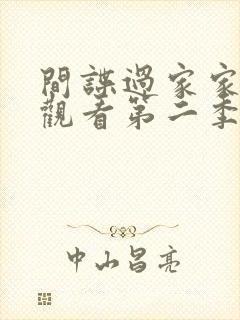 間諜過家家
觀看第二季
中山昌亮